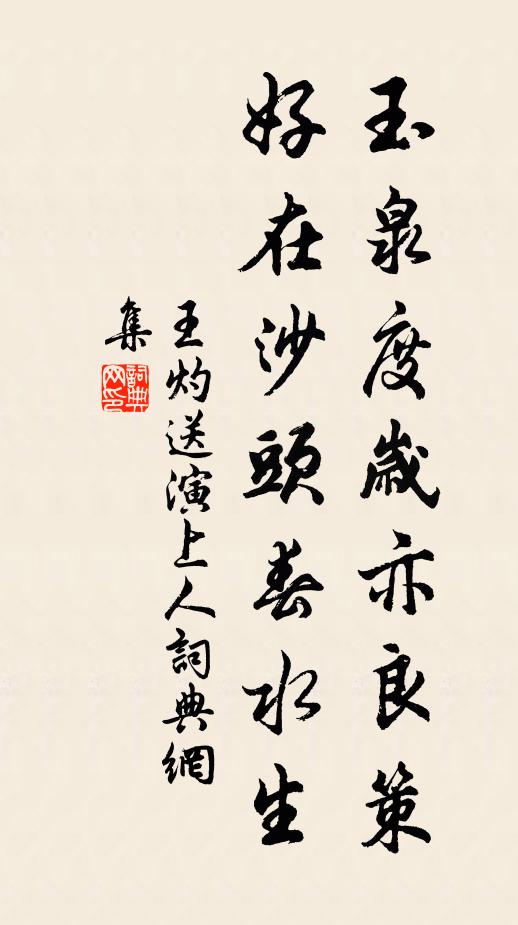 玉泉度歲亦良策
好在沙頭春水生
王灼送演上人詞典網
集
詞典網印